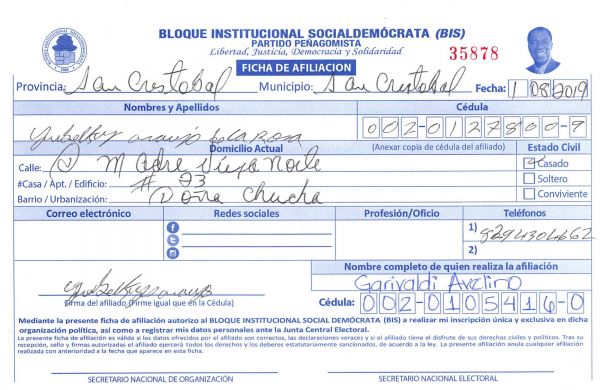 BLOQUE INSTITUCIONAL SOCIALDEMÓCRATA (BIS)
PARTIDO PEÑAGOMISTA
Libertad, Justicia, Democracia y Solidaridad
35878
FICHA DE AFILIACION
Provincia: San Cristobal Municipio: San Cristobal Fecha: 1 08 2019
Nombres y Apellidos Cédula
Yubelkys araujo de la rosa 002-0127860-9
Domicilio Actual (Anexar copia de cédula del afiliado) Estado Civil
Calle: Madre Vieja Norte Casado
#Casa / Apt. / Edificio: # 73 Soltero
Barrio / Urbanización: Doña Chucha Conviviente
Correo electrónico Redes sociales Profesión/Oficio Teléfonos
1) 8294304662
2)
Nombre completo de quien realiza la afiliación
Yubelkys araujo Garivaldi Avelino
Firma del afiliado (Firme igual que en la Cédula) Cédula: 002-0105416-0
Mediante la presente ficha de afiliación autorizo al BLOQUE INSTITUCIONAL SOCIAL DEMÓCRATA (BIS) a realizar mi inscripción única y exclusiva en dicha
organización política, así como a registrar mis datos personales ante la Junta Central Electoral.
La presente ficha de afiliación es válida si los datos ofrecidos por el afiliado son correctos, las declaraciones veraces y si el afiliado tiene el disfrute de sus derechos civiles y políticos. Tras su
recepción, sello y firmas autorizadas el afiliado ejercerá todos los derechos y los deberes estatutariamente sancionados, de acuerdo a la ley. La presente afiliación anula cualquier afiliación
realizada con anterioridad a la fecha que aparece en esta ficha.
SECRETARIO NACIONAL DE ORGANIZACIÓN SECRETARIO NACIONAL ELECTORAL